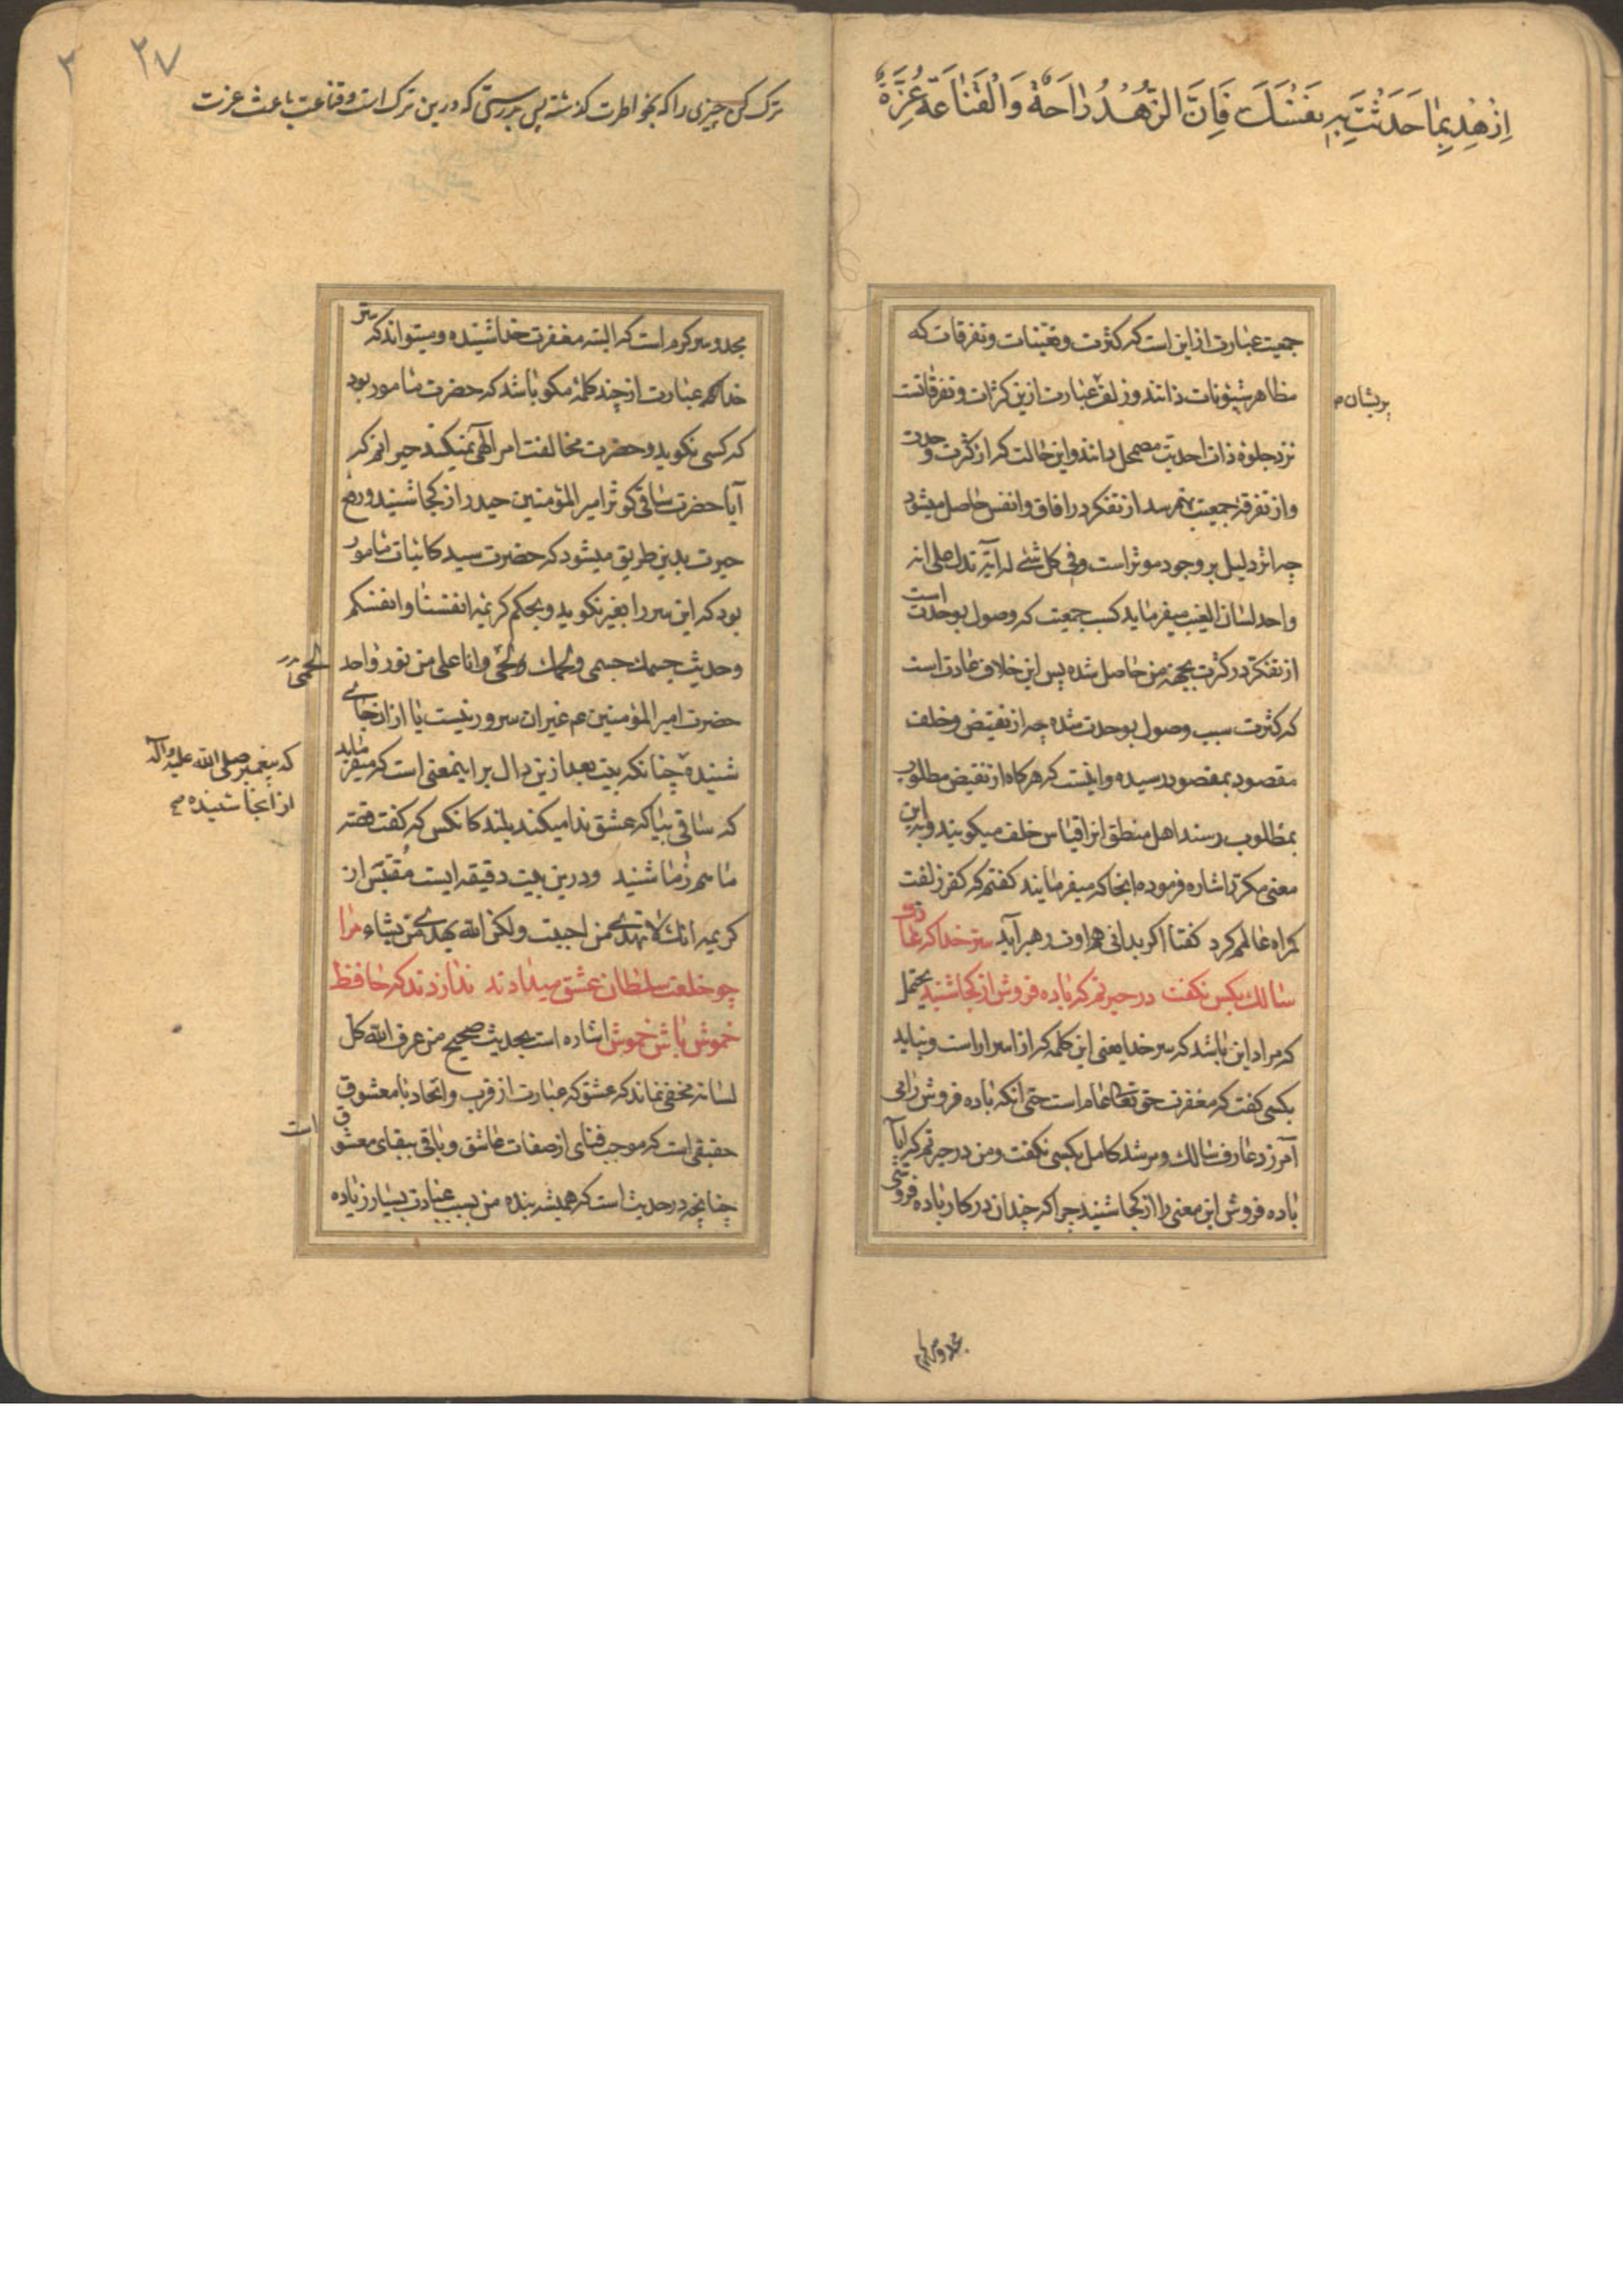 اِزْهَدْ بِمٰا حَدَثَتْ بِهِ نَفْسُكَ فَاِنَّ الزُّهْدَ رٰاحَةٌ وَالْقَنٰاعَة عِزَّةٌ
جمعیت عبارت از این است که کثرت و تعینات و تفرقات که
مظاهر شئونات ذاتند و زلف عبارت ازین کثرات و تفرقاتست
پریشان
نزد جلوه ذات احدیت مضمحل دانند و این حالت که از کثرت وحدت
و از تفرقه جمعیت بهم رسد از تفکر در افاق و انفس حاصل میشود
چه اثر دلیل بر وجود موثر است وفی کل شئ له آیة تدل علی انه
واحد لسان الغیب میفرماید کسب جمعیت که وصول بوحدت است
از تفکر در کثرت بجهة من حاصل شده پس این خلاف عادت است
که کثرت سبب وصول بوحدت شده چه از نقیض و خلف
مقصود بمقصود رسیده و اینست که هرکاه از نقیض مطلوب
بمطلوب رسند اهل منطق انرا قیاس خلف میکویند و باین
معنی مکرر اشاره فرموده انجا که میفرمایند کفتم که کفر زلفت
کمراه عالمم کرد کفتا اکر بدانی هم اوت رهبر آید سر خدا که عارف
سالك بکس نکفت در حیرتم که باده فروش از کجا شنید محتمل
که مراد این باشد که سر خدا یعنی این کلمه که از اسرار است و نباید
بکسی کفت که مغفرت حق تعالی عام است حتی انکه باده فروش را می
آمرزد عارف سالك و مرشد کامل بکسی نکفت و من در حیرتم که آیا
باده فروش این معنی را از کجا شنید چرا که چندان در کار باده فروشی
مجد و سرکرم
۲۷
۲
ترک کن چیزی را که بخواطرت کذشته پس بدرستی که درین ترک راحت است و قناعت باعث عزت
مجد و سرکرم است که البته مغفرت خدا شنیده و میتواند که سر
خدا که عبارت از چند کلمهٔ مکو باشد که حضرت مامور بود
که کسی نکوید و حضرت مخالفت امر الهی نمیکند حیرانم که
آیا حضرت ساقی کوثر امیرالمؤمنین حیدر از کجا شنید و رفع
حیرت بدین طریق میشود که حضرت سید کائنات مامور
بود که این سر را بغیر نکوید و بحکم کریمه انفسنا و انفسکم
و حدیث جسمك جسمی و لحمك لحمی و انا علی من نور واحد
حضرت امیرالمؤمنین عم غیر ان سرور نیست یا از ان جائی
که پیغمبر صلی الله علیه و آله
از انجا شنیده
شنیده چنانکه بیت بعد ازین دال بر اینمعنی است که میفرماید
که ساقی بیا که عشق ندا میکند بلند کانکس که کفت قصه
ما هم ز ما شنید و درین بیت دقیقه ایست مُقتَبَس از
کریمه انك لا تهدی من احببت ولکن الله یهدی من یشاء مرا
چو خلعت سلطان عشق میدادند ندا زدند که حافظ
خموش باش خموش اشاره است بحدیث صحیح من عرف الله کل
لسانه مخفی نماند که عشق که عبارت از قرب و اتحاد با معشوق
است
حقیقی است که موجب فنای از صفات عاشق و باقی ببقای معشوق
چنانچه در حدیث است که همیشه بنده من بسبب عبادت بسیار زیاده